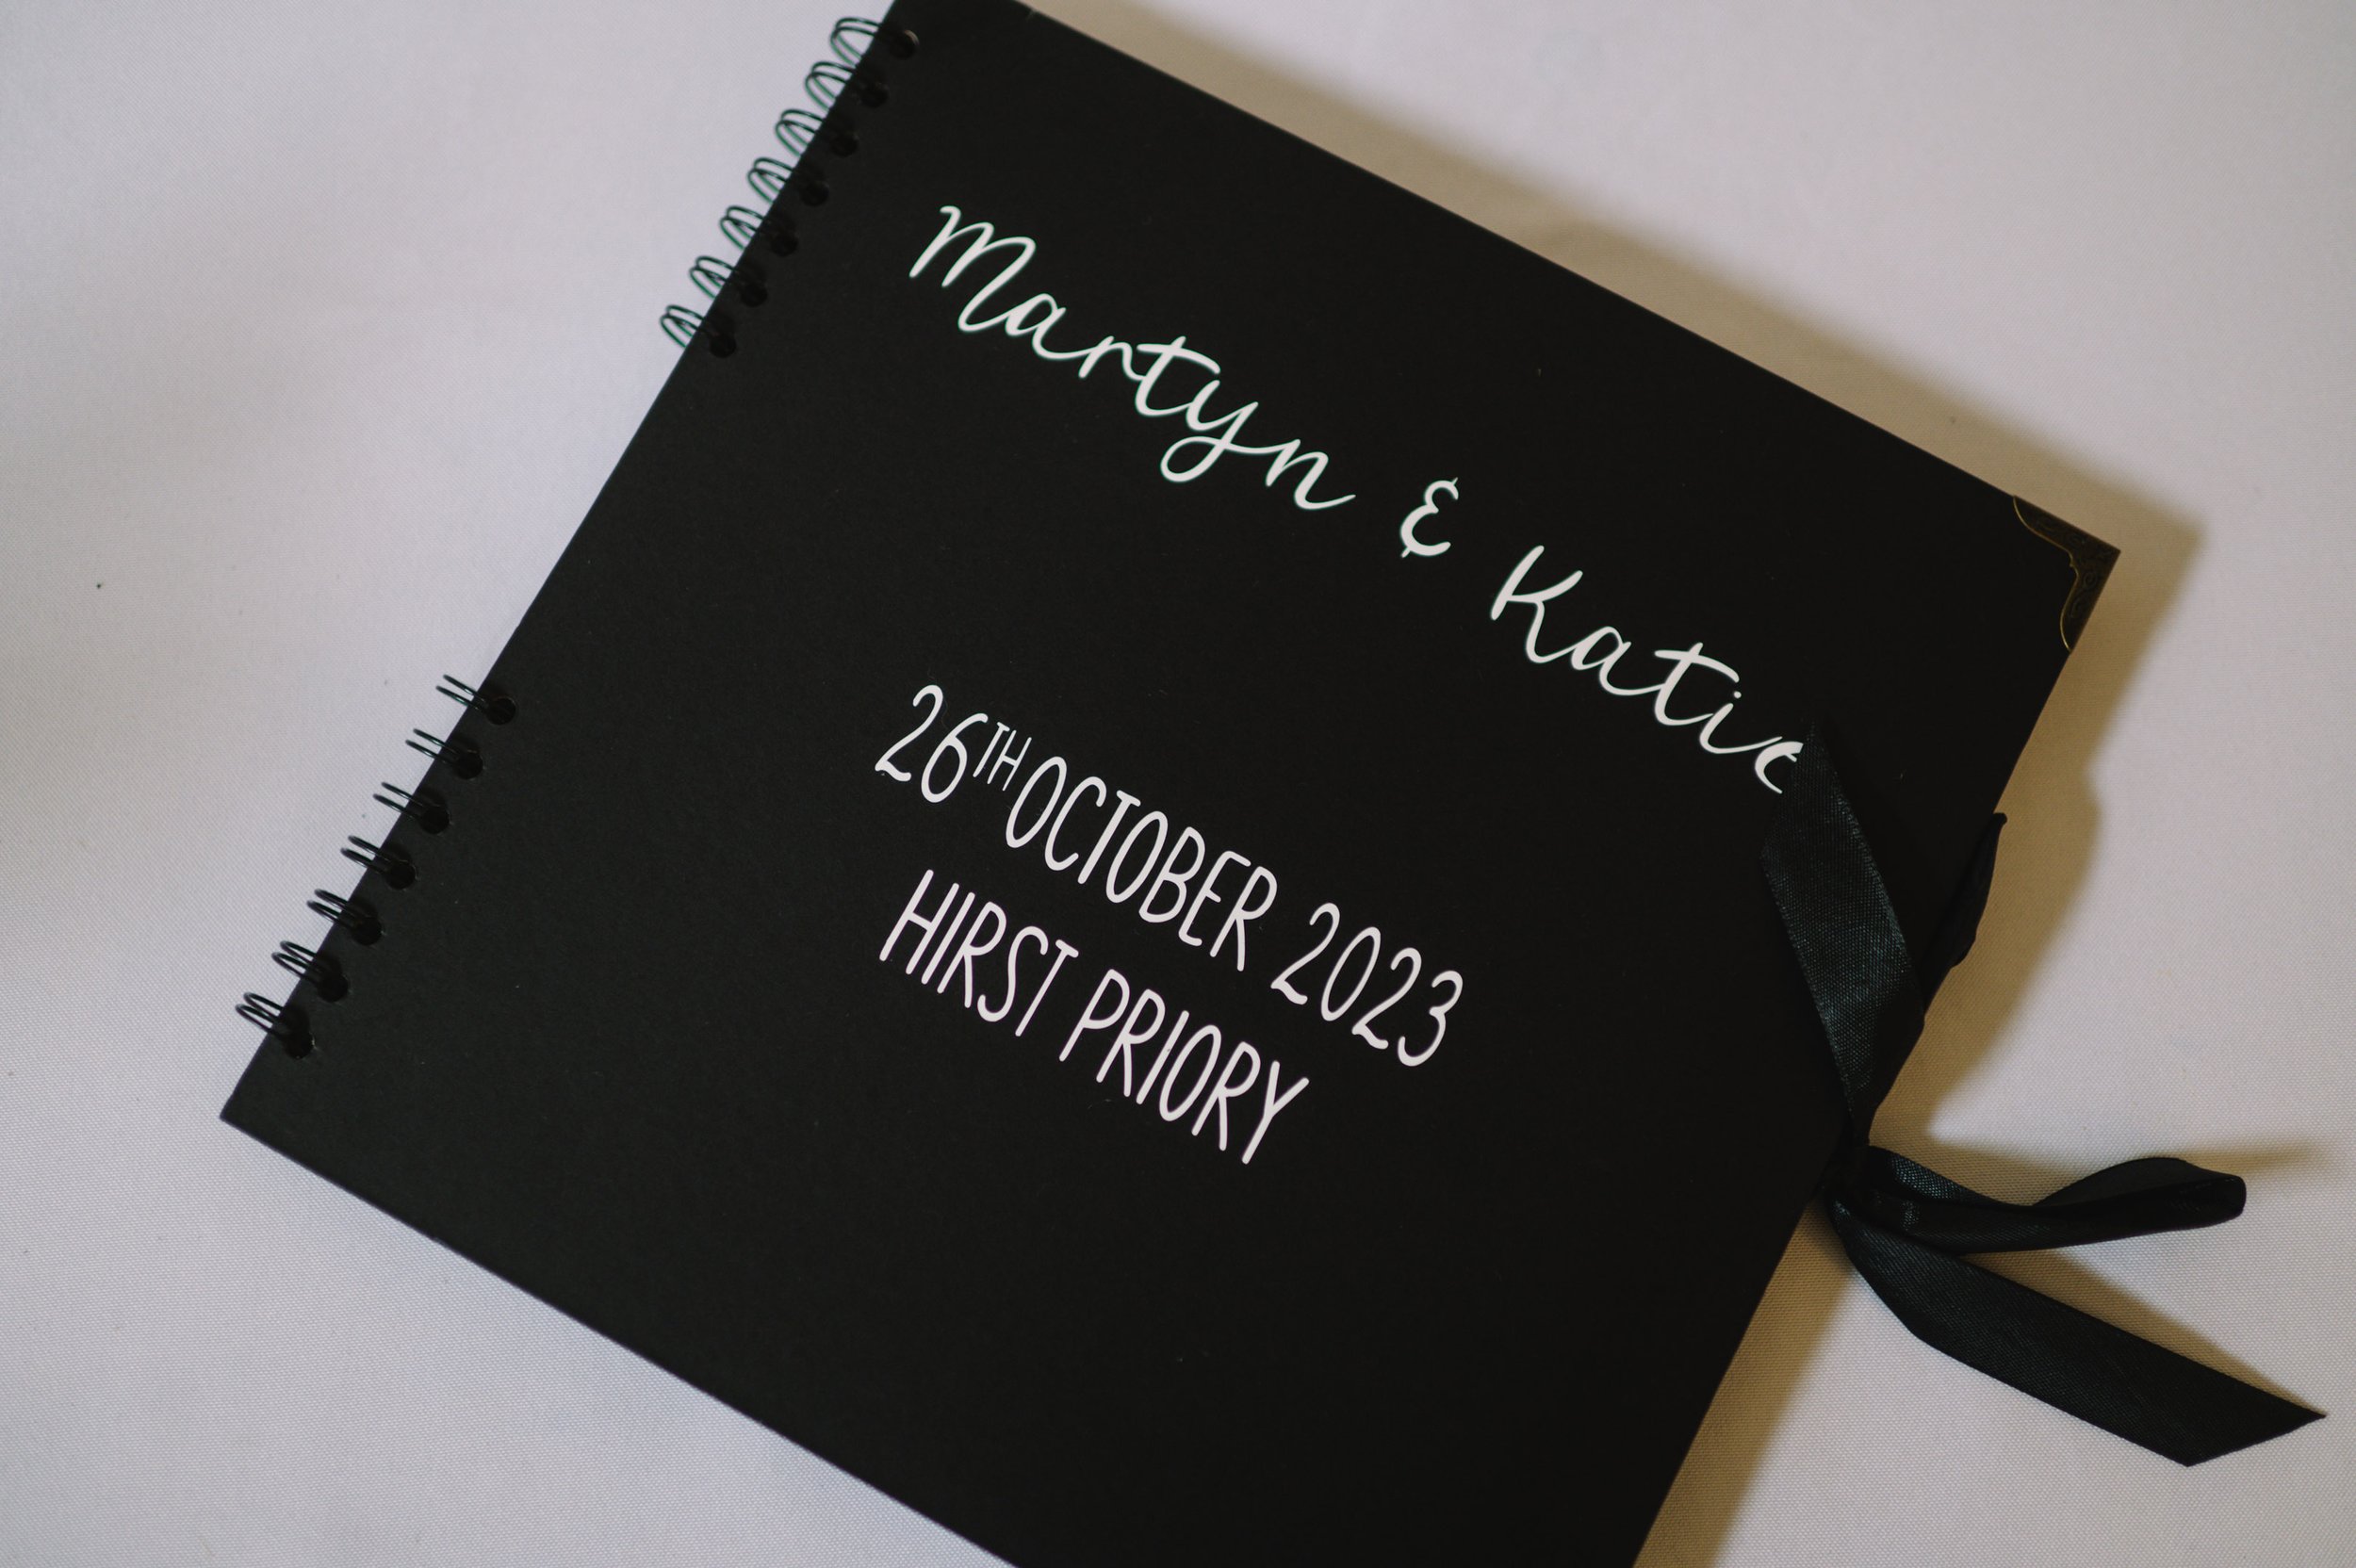 Martyn & Katie
26TH OCTOBER 2023
HIRST PRIORY